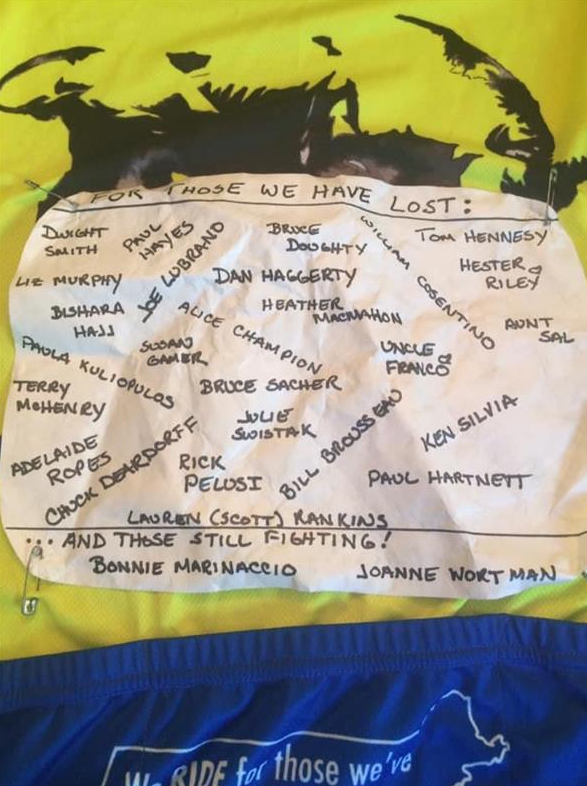 FOR THOSE WE HAVE LOST:
DWIGHT
SMITH
PAUL
HAYES
JOE LUBRANO
BRUCE
DOUGHTY
WILLIAM COSENTINO
TOM HENNESY
HESTER
RILEY
LIZ MURPHY
DAN HAGGERTY
BISHARA
HAJJ
ALICE CHAMPION
HEATHER
MACMAHON
AUNT
SAL
PAULA KULIOPULOS
SUSAN
GAMER
UNCLE
FRANCO
TERRY
MCHENRY
BRUCE SACHER
JULIE
SWISTAK
BILL BROUSSEAU
KEN SILVIA
ADELAIDE
ROPES
CHUCK DEARDORFF
RICK
PELUSI
PAUL HARTNETT
LAUREN (SCOTT) RANKINS
... AND THOSE STILL FIGHTING!
BONNIE MARINACCIO
JOANNE WORTMAN
We RIDE for those we've